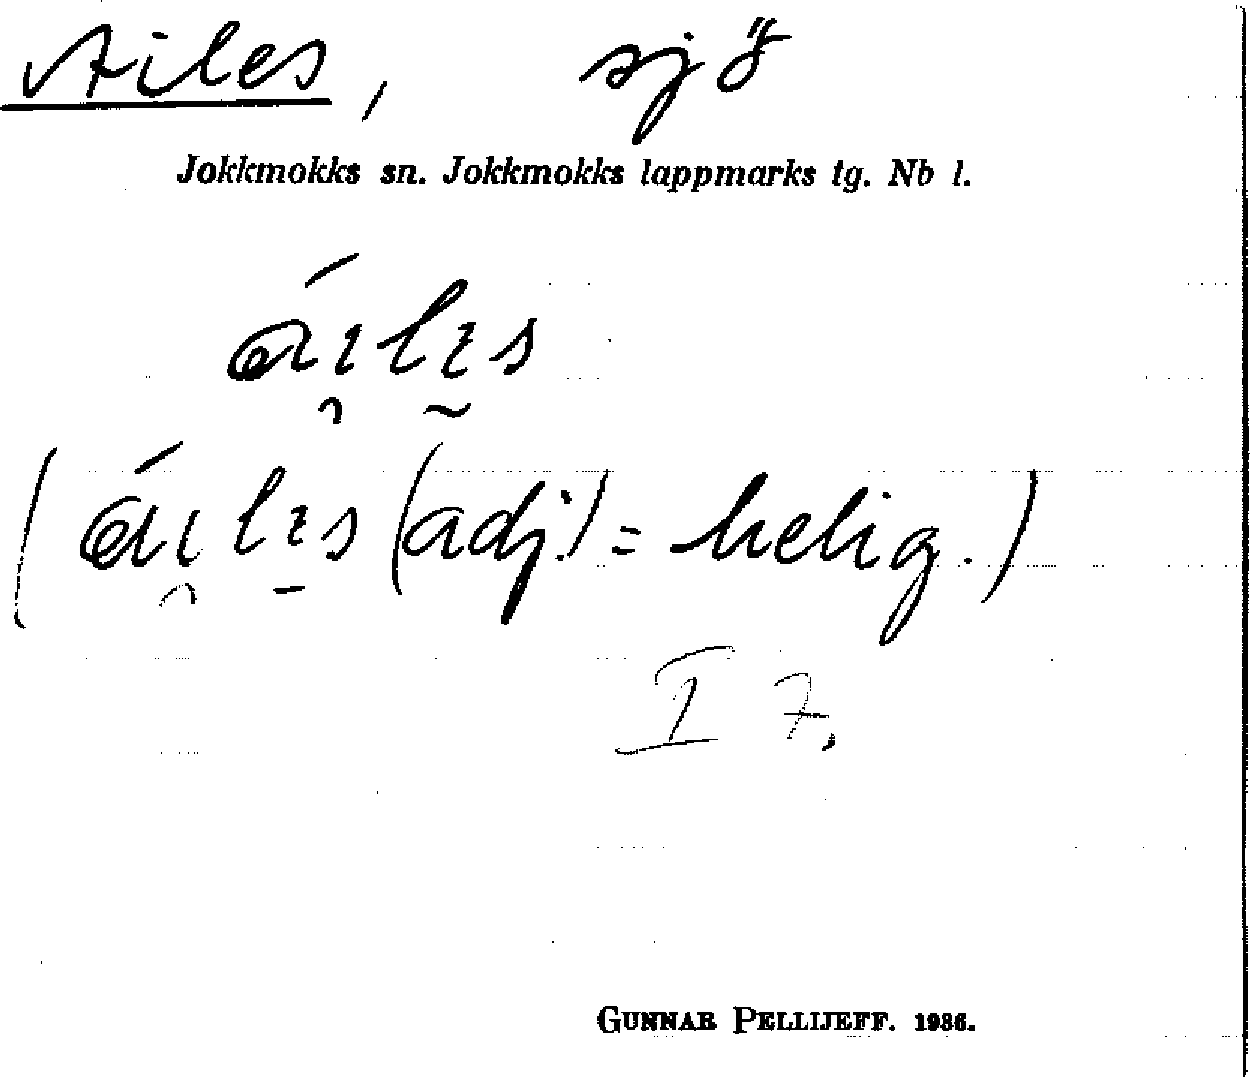 Ailes, sjö
Jokkmokks sn. Jokkmokks lappmarks tg. Nb l.
áı̯lɪ̰s
(áı̯lɪ̱s (adj.) = helig.)
I 7,
GUNNAR PELLIJEFF. 1986.